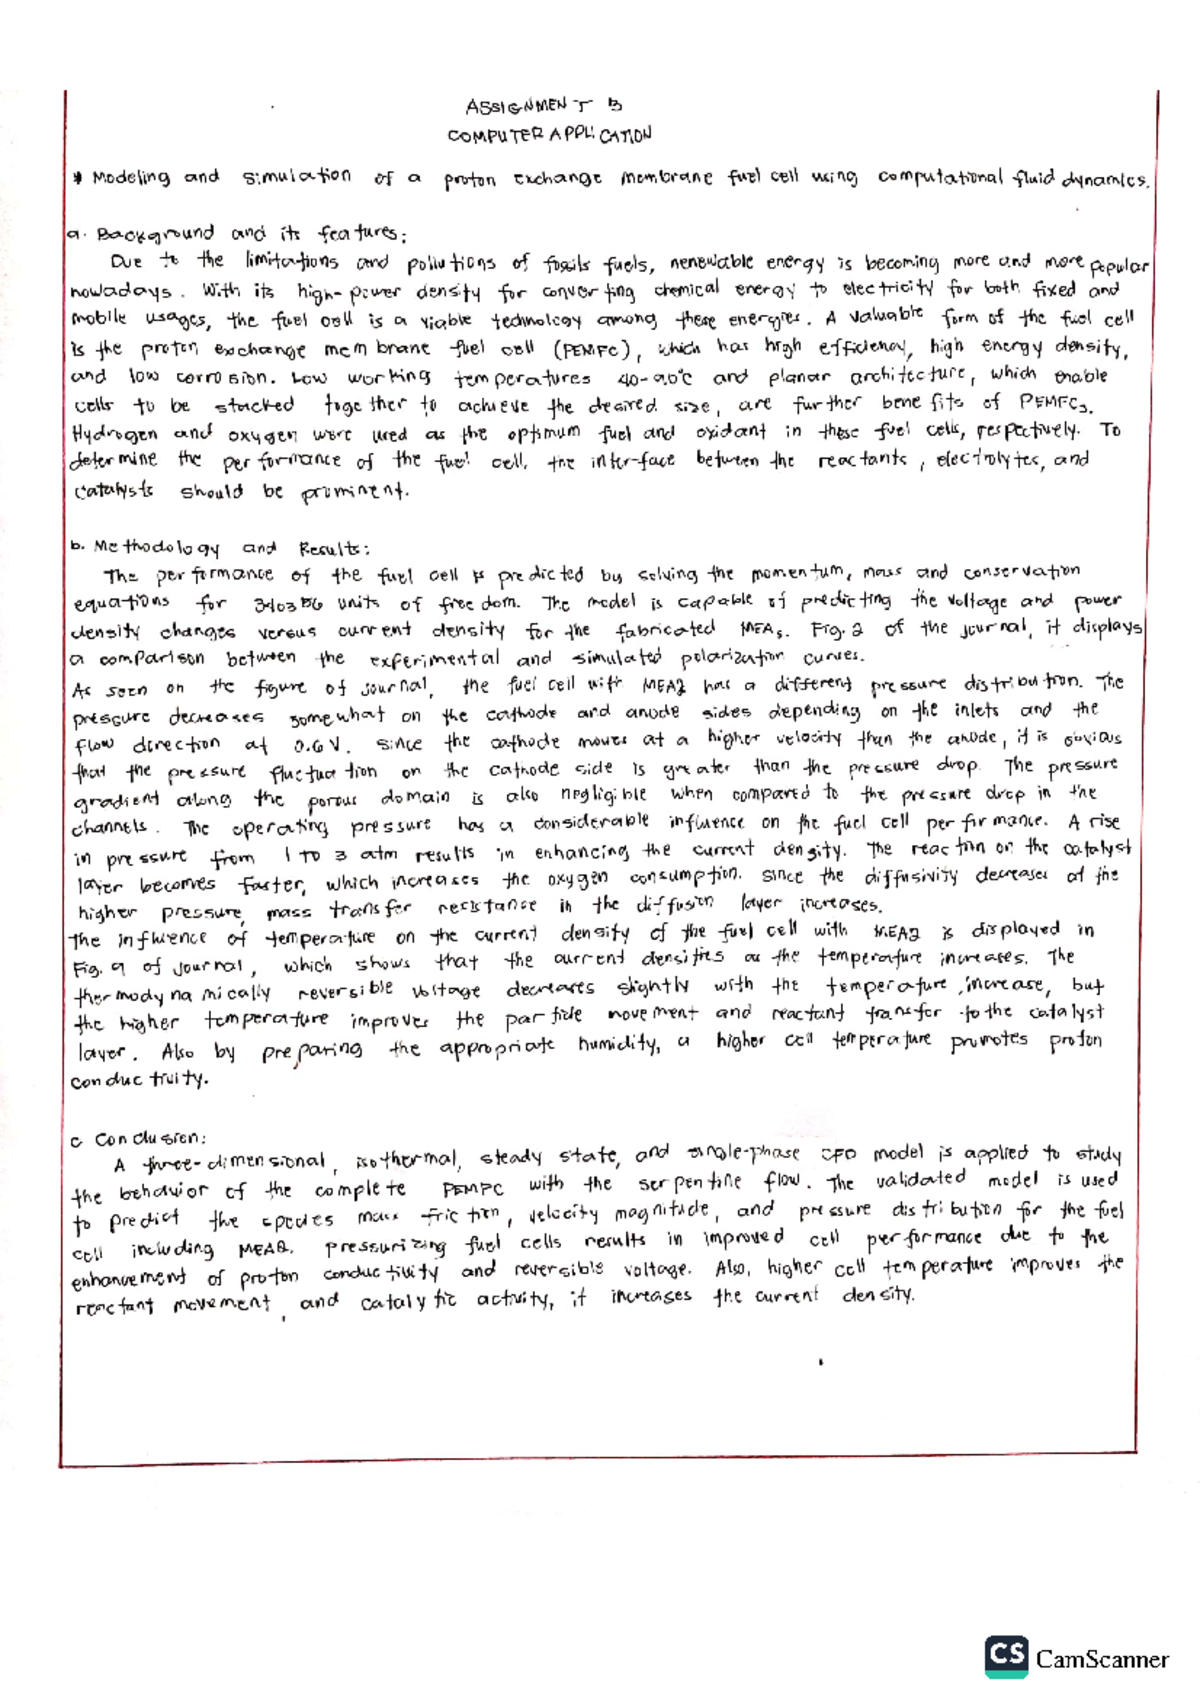 ASSIGNMENT 3
COMPUTER APPLICATION
* Modeling and simulation of a proton exchange membrane fuel cell using computational fluid dynamics.
a. Background and its features:
Due to the limitations and pollutions of fossils fuels, renewable energy is becoming more and more popular
nowadays. With its high-power density for converting chemical energy to electricity for both fixed and
mobile usages, the fuel cell is a viable technology among these energies. A valuable form of the fuel cell
is the proton exchange membrane fuel cell (PEMFC), which has high efficiency, high energy density,
and low corrosion. Low working temperatures 40-90°C and planar architecture, which enable
cells to be stacked together to achieve the desired size, are further benefits of PEMFCs.
Hydrogen and oxygen were used as the optimum fuel and oxidant in these fuel cells, respectively. To
determine the performance of the fuel cell, the inter-face between the reactants, electrolytes, and
catalysts should be prominent.
b. Methodology and Results:
The performance of the fuel cell is predicted by solving the momentum, mass and conservation
equations for units of freedom. The model is capable of predicting the voltage and power
density changes versus current density for the fabricated MEAs. Fig. 2 of the journal, it displays
a comparison between the experimental and simulated polarization curves.
As seen on the figure of journal, the fuel cell with MEA2 has a different pressure distribution. The
pressure decreases somewhat on the cathode and anode sides depending on the inlets and the
flow direction at 0.6V. since the cathode moves at a higher velocity than the anode, it is obvious
that the pressure fluctuation on the cathode side is greater than the pressure drop. The pressure
gradient along the porous domain is also negligible when compared to the pressure drop in the
channels. The operating pressure has a considerable influence on the fuel cell performance. A rise
in pressure from 1 to 3 atm results in enhancing the current density. The reaction on the catalyst
layer becomes faster, which increases the oxygen consumption. Since the diffusivity decreases at the
higher pressure, mass transfer resistance in the diffusion layer increases.
The influence of temperature on the current density of the fuel cell with MEA2 is displayed in
Fig. 9 of journal, which shows that the current densities as the temperature increases. The
thermodynamically reversible voltage decreases slightly with the temperature increase, but
the higher temperature improves the particle movement and reactant transfer to the catalyst
layer. Also by preparing the appropriate humidity, a higher cell temperature promotes proton
conductivity.
c Conclusion:
A three-dimensional, isothermal, steady state, and single-phase CFD model is applied to study
the behavior of the complete PEMFC with the serpentine flow. The validated model is used
to predict the species mass friction, velocity magnitude, and pressure distribution for the fuel
cell including MEA2. pressurizing fuel cells results in improved cell performance due to the
enhancement of proton conductivity and reversible voltage. Also, higher cell temperature improves the
reactant movement, and catalytic activity, it increases the current density.
CS CamScanner